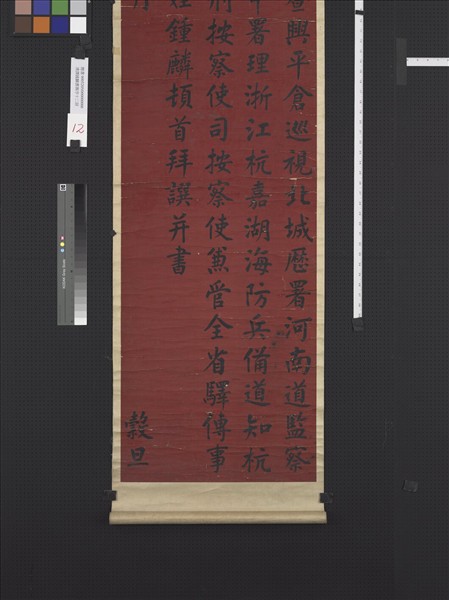 查興平倉巡視北城歷署河南道監察
署理浙江杭嘉湖海防兵備道知杭
按察使司按察使兼管全省驛傳事
鍾麟頓首拜譔并書
穀旦
12